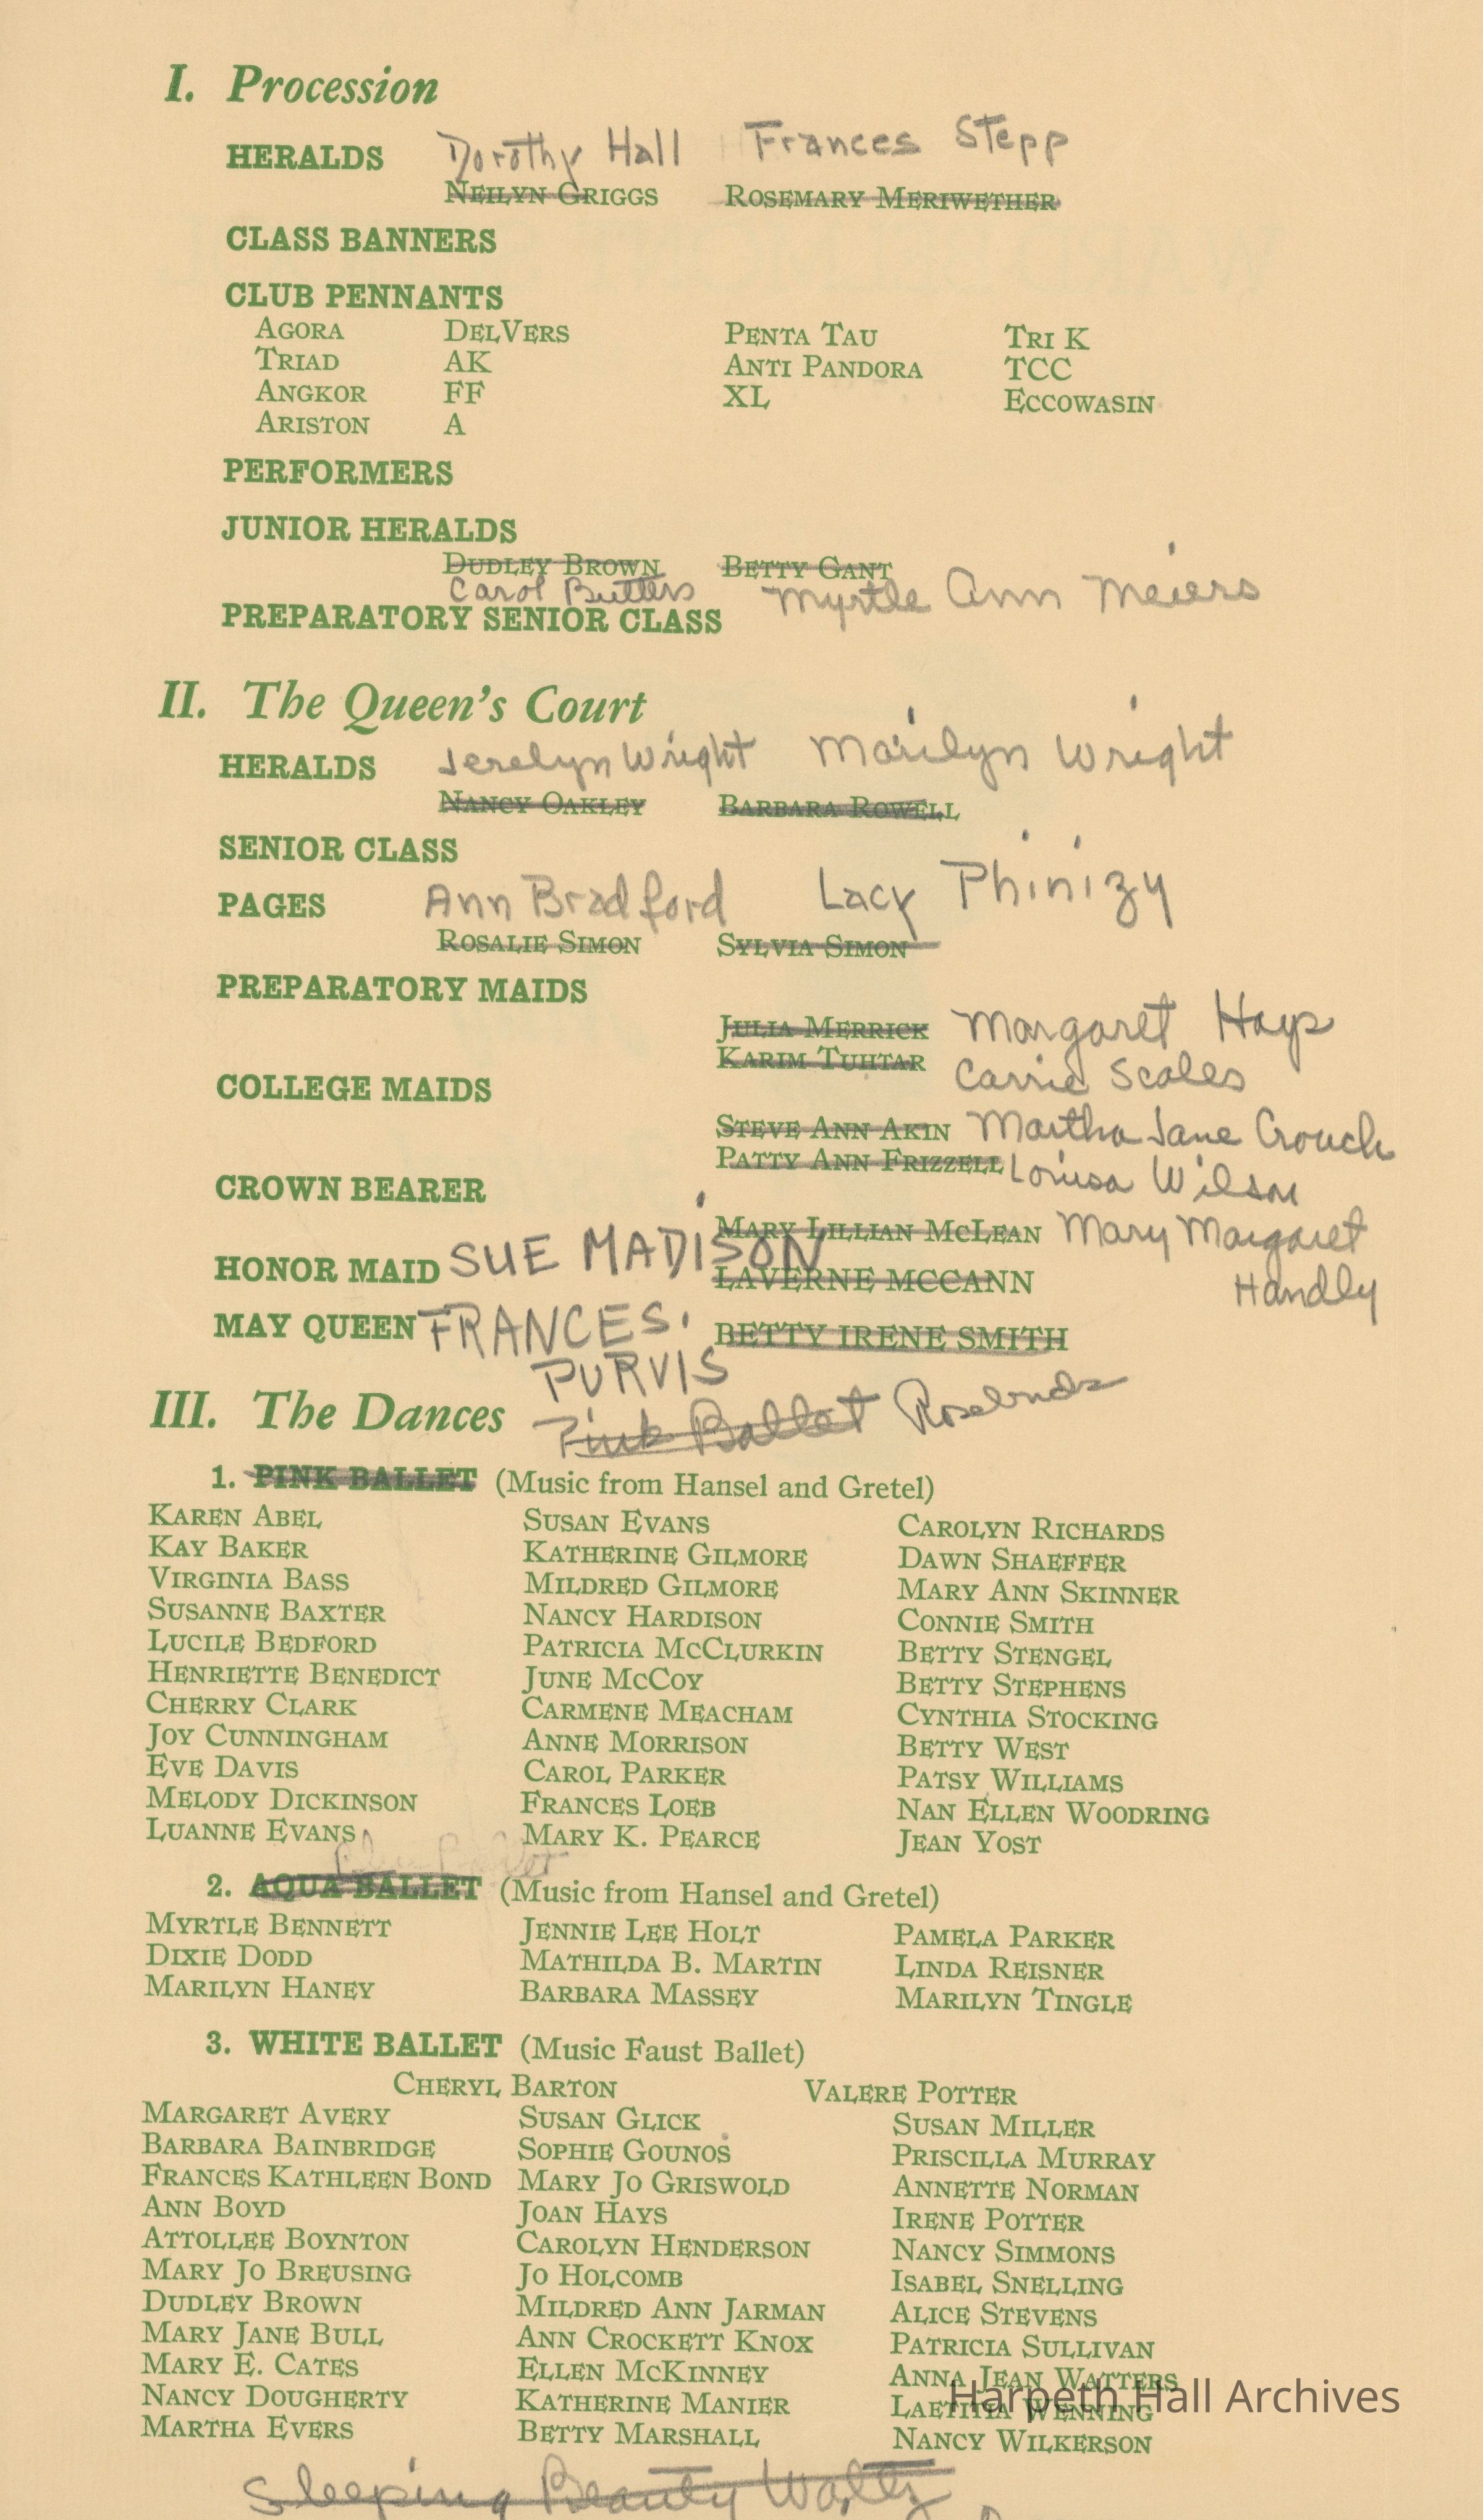 I. Procession
HERALDS Dorothy Hall Frances Stepp
NEILYN GRIGGS ROSEMARY MERIWETHER
CLASS BANNERS
CLUB PENNANTS
AGORA DELVERS PENTA TAU TRI K
TRIAD AK ANTI PANDORA TCC
ANGKOR FF XL ECCOWASIN
ARISTON A
PERFORMERS
JUNIOR HERALDS
DUDLEY BROWN BETTY GANT
Carol Butters Myrtle Ann Meiers
PREPARATORY SENIOR CLASS
II. The Queen's Court
HERALDS Jerelyn Wright Marilyn Wright
NANCY OAKLEY BARBARA ROWELL
SENIOR CLASS
PAGES Ann Bradford Lacy Phinizy
ROSALIE SIMON SYLVIA SIMON
PREPARATORY MAIDS
JULIA MERRICK Margaret Hays
KARIM TUHTAR Carrie Scales
COLLEGE MAIDS
STEVE ANN AKIN Martha Jane Crouch
PATTY ANN FRIZZELL Louisa Wilson
CROWN BEARER
MARY LILLIAN MCLEAN Mary Margaret
Handly
HONOR MAID SUE MADISON LAVERNE MCCANN
MAY QUEEN FRANCES BETTY IRENE SMITH
PURVIS
III. The Dances Pink Ballet Rosebuds
1. PINK BALLET (Music from Hansel and Gretel)
KAREN ABEL SUSAN EVANS CAROLYN RICHARDS
KAY BAKER KATHERINE GILMORE DAWN SHAEFFER
VIRGINIA BASS MILDRED GILMORE MARY ANN SKINNER
SUSANNE BAXTER NANCY HARDISON CONNIE SMITH
LUCILE BEDFORD PATRICIA MCCLURKIN BETTY STENGEL
HENRIETTE BENEDICT JUNE MCCOY BETTY STEPHENS
CHERRY CLARK CARMENE MEACHAM CYNTHIA STOCKING
JOY CUNNINGHAM ANNE MORRISON BETTY WEST
EVE DAVIS CAROL PARKER PATSY WILLIAMS
MELODY DICKINSON FRANCES LOEB NAN ELLEN WOODRING
LUANNE EVANS MARY K. PEARCE JEAN YOST
Ballet
2. AQUA BALLET (Music from Hansel and Gretel)
MYRTLE BENNETT JENNIE LEE HOLT PAMELA PARKER
DIXIE DODD MATHILDA B. MARTIN LINDA REISNER
MARILYN HANEY BARBARA MASSEY MARILYN TINGLE
3. WHITE BALLET (Music Faust Ballet)
CHERYL BARTON VALERE POTTER
MARGARET AVERY SUSAN GLICK SUSAN MILLER
BARBARA BAINBRIDGE SOPHIE GOUNOS PRISCILLA MURRAY
FRANCES KATHLEEN BOND MARY JO GRISWOLD ANNETTE NORMAN
ANN BOYD JOAN HAYS IRENE POTTER
ATTOLLEE BOYNTON CAROLYN HENDERSON NANCY SIMMONS
MARY JO BREUSING JO HOLCOMB ISABEL SNELLING
DUDLEY BROWN MILDRED ANN JARMAN ALICE STEVENS
MARY JANE BULL ANN CROCKETT KNOX PATRICIA SULLIVAN
MARY E. CATES ELLEN MCKINNEY ANNA JEAN WATTERS
NANCY DOUGHERTY KATHERINE MANIER LAETITIA WENNING
MARTHA EVERS BETTY MARSHALL NANCY WILKERSON
Harpeth Hall Archives
Sleeping Beauty Waltz